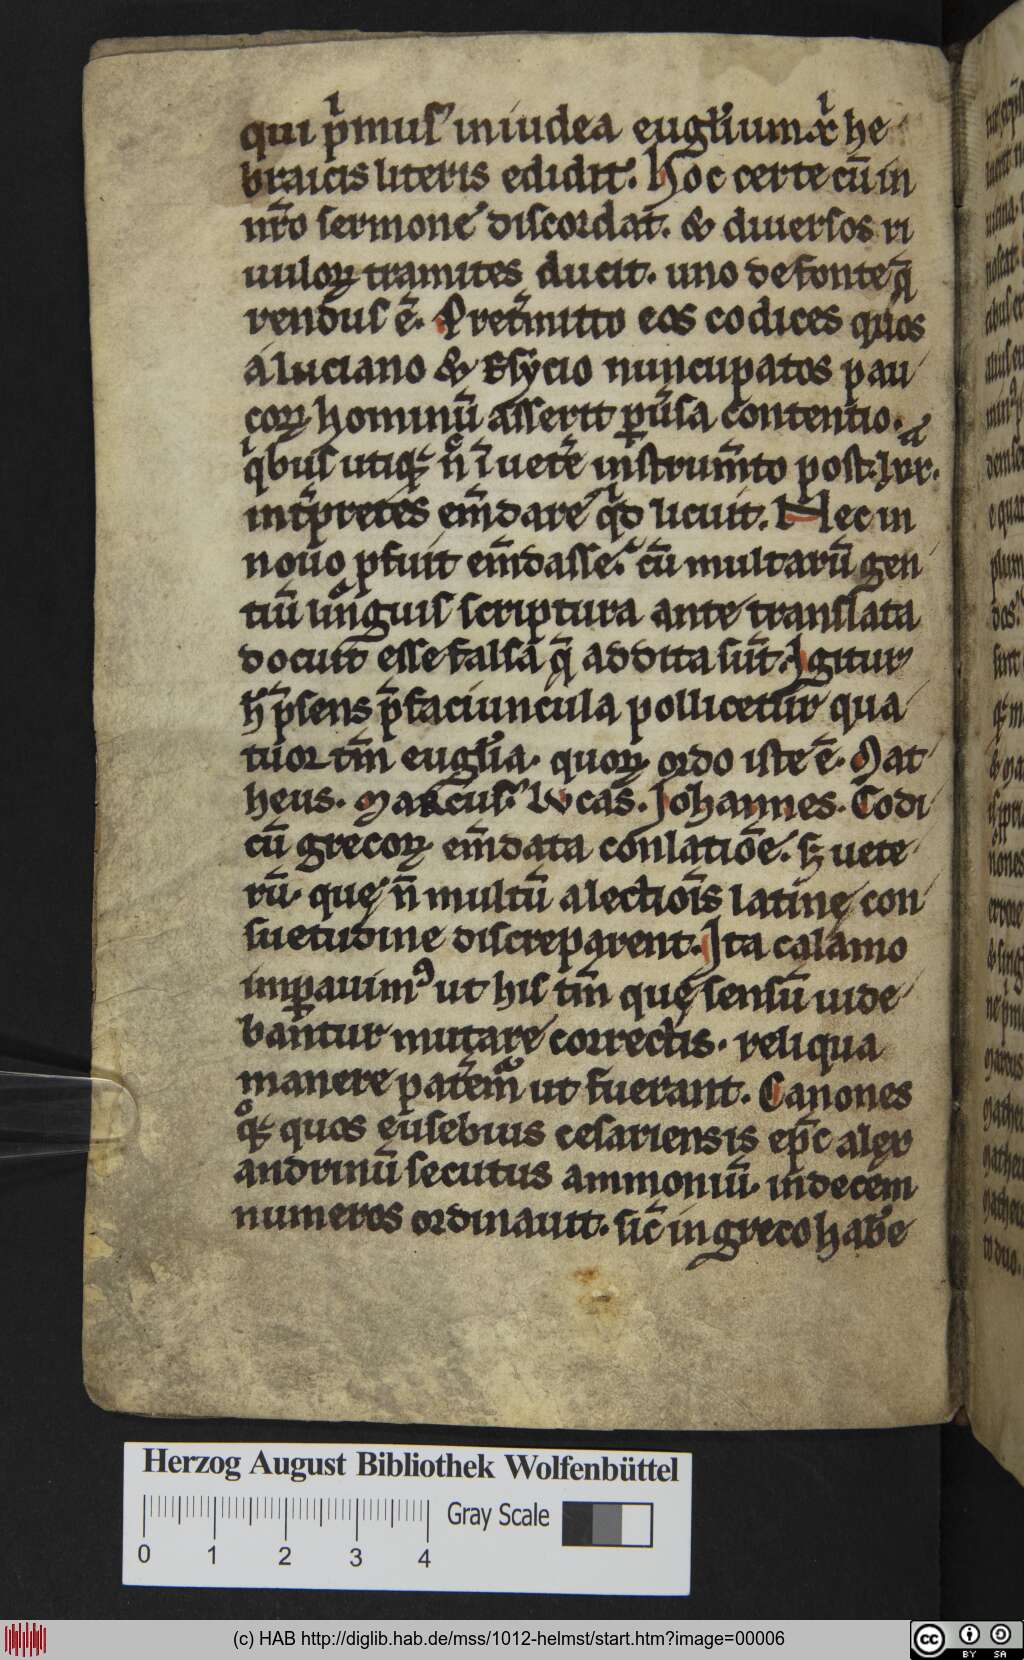 qui pͥmus in iudea eug̅lium xͥ he
braicis literis edidit. Hoc certe cū in
nr̅o sermone discordat. & diuersos ri
uuloꝝ tramites ducit. uno de fonte q̄
rendus ē. Pretm̅itto eos codices quos
a luciano & Esycio nuncupatos pau
coꝝ hominū asserit ꝑuersa contentio.
qͥbus utiqꝫ nͦ ī uetere instrum̅to post. lxx.
int̅pretes em̅dare qͥd licuit. Nec in
nouo ꝓfuit em̅dasse. cū multarū gen
tiū linguis scriptura ante translata
docuit esse falsa q̄ addita sūt. Igitur
h̅ p̅sens p̅faciuncula pollicetur qua
tuor tm̅ eug̅lia. quoꝝ ordo iste ē. Mat
heus. Marcus. Lvcas. Johannes. Codi
cū grecoꝝ em̅data conlatiōe. sꝫ uete
rū. quę n̅ multū a lectiois̅ latinę con
suetudine discreparent. Ita calamo
imꝑauimꝰ ut his tm̅ quę sensū uide
bantur mutare correctis. reliqua
manere pateremͬ ut fuerant. Canones
qͦqꝫ quos eusebius cesariensis ep̅c alex
andrinū secutus ammoniū. in decem
numeros ordinauit. sic̅ in greco habe
Herzog August Bibliothek Wolfenbüttel
Gray Scale
0 1 2 3 4
(c) HAB http://diglib.hab.de/mss/1012-helmst/start.htm?image=00006
cc BY SA